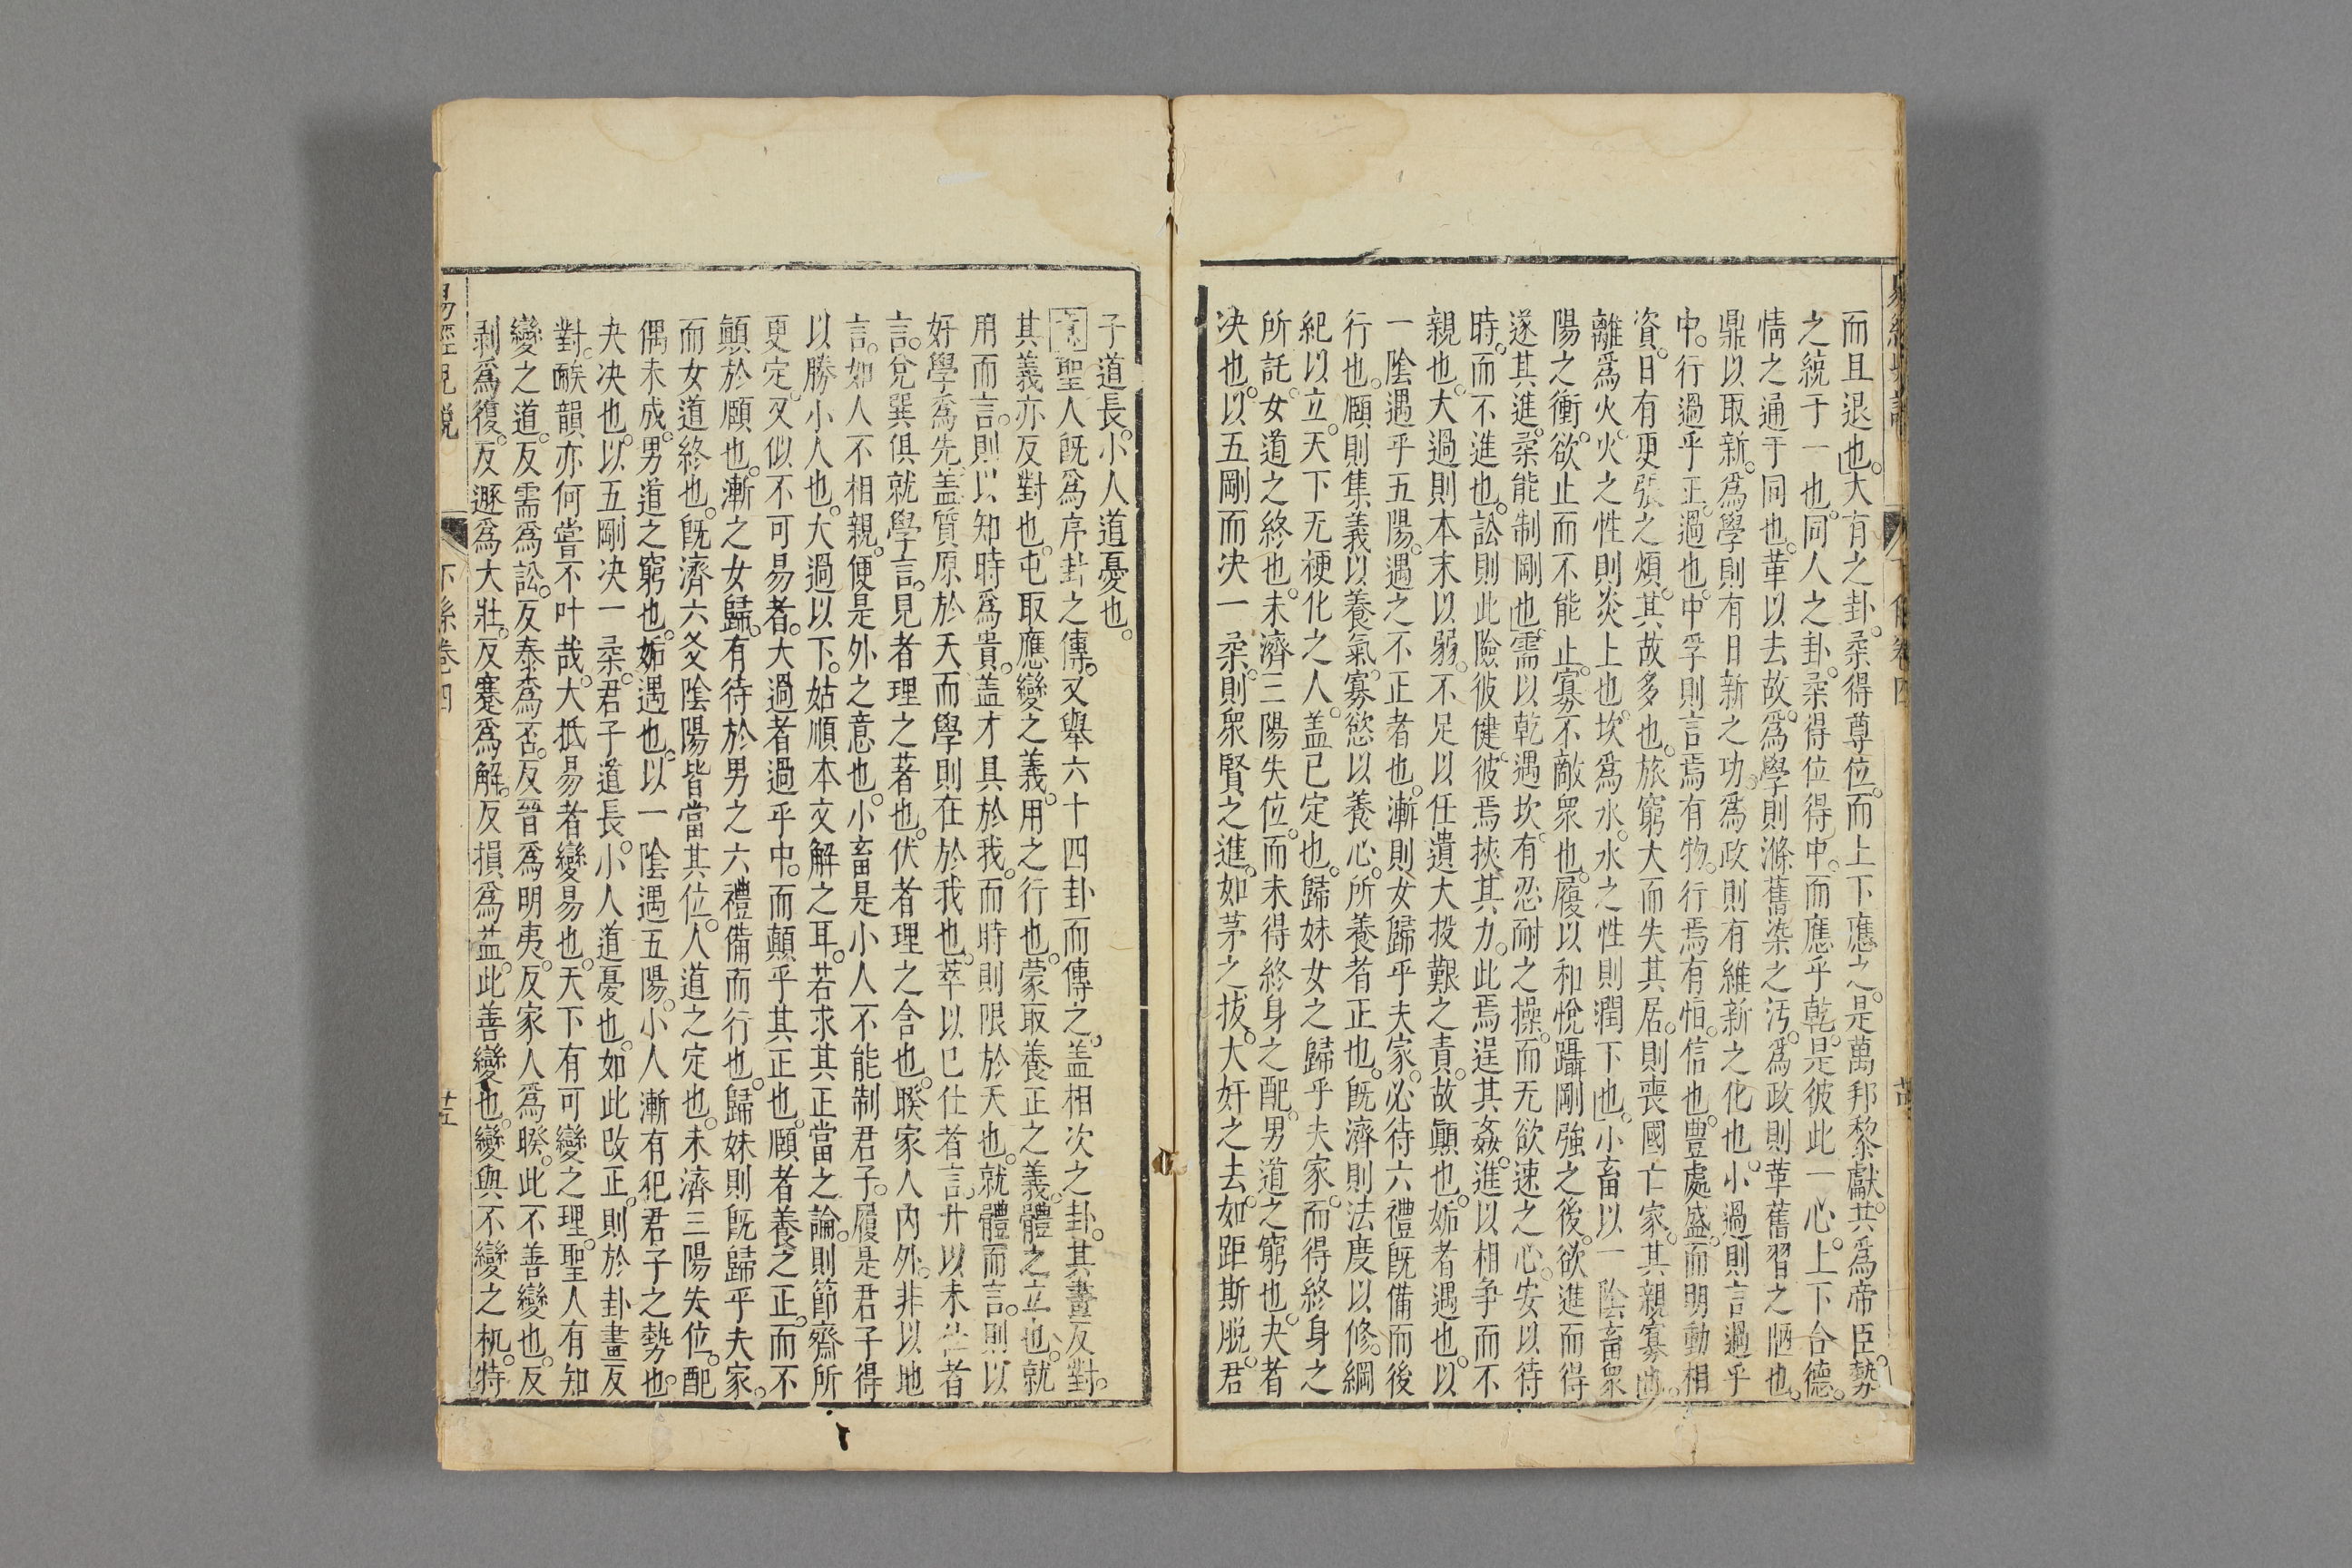 而且退也。大有之卦。柔得尊位。而上下應之。是萬邦黎獻。共爲帝臣。勢
之統于一也。同人之卦。柔得位得中。而應乎乾。是彼此一心。上下合德。
情之通于同也。革以去故。爲學則滌舊染之汚。爲政則革舊習之陋也。
鼎以取新。爲學則有日新之功。爲政則有維新之化也。小過則言過乎
中。行過乎正。過也。中孚則言焉有物。行焉有恒。信也。豐處盛。而明動相
資。日有更張之煩。其故多也。旅窮大而失其居。則喪國亡家。其親寡也。
離爲火。火之性則炎上也。坎爲水。水之性則潤下也。小畜以一陰畜衆
陽之衝。欲止而不能止。寡不敵衆也。履以和悅躡剛強之後。欲進而得
遂其進。柔能制剛也。需以乾遇坎。有忍耐之操。而无欲速之心。安以待
時。而不進也。訟則此險彼健。彼焉挾其力。此焉逞其姦。進以相爭而不
親也。大過則本末以弱。不足以任遺大投艱之責。故顛也。姤者遇也。以
一陰遇乎五陽。遇之不正者也。漸則女歸乎夫家。必待六禮旣備而後
行也。頤則集義以養氣。寡慾以養心。所養者正也。旣濟則法度以修。綱
紀以立。天下无梗化之人。盖已定也。歸妹女之歸乎夫家。而得終身之
所託。女道之終也。未濟三陽失位。而未得終身之配。男道之窮也。夬者
決也。以五剛而決一柔。則衆賢之進。如茅之拔。大奸之去。如距斯脫。君
子道長。小人道憂也。
意聖人旣爲序卦之傳。又舉六十四卦而傳之。盖相次之卦。其畫反對。
其義亦反對也。屯取應變之義。用之行也。蒙取養正之義。體之立也。就
用而言。則以知時爲貴。盖才具於我。而時則限於天也。就體而言。則以
好學爲先。盖質原於天而學則在於我也。萃以已仕者言。升以未仕者
言。兌巽俱就學言。見者理之著也。伏者理之含也。睽家人內外。非以地
言。如人不相親。便是外之意也。小畜是小人不能制君子。履是君子得
以勝小人也。大過以下。姑順本文解之耳。若求其正當之論。則節齋所
更定。又似不可易者。大過者過乎中。而顛乎其正也。頤者養之正。而不
顛於頤也。漸之女歸。有待於男之六禮備而行也。歸妹則旣歸乎夫家。
而女道終也。旣濟六爻陰陽皆當其位。人道之定也。未濟三陽失位。配
偶未成。男道之窮也。姤遇也。以一陰遇五陽。小人漸有犯君子之勢也。
夬決也。以五剛決一柔。君子道長。小人道憂也。如此改正。則於卦畫反
對。酸韻亦何嘗不叶哉。大抵易者變易也。天下有可變之理。聖人有知
變之道。反需爲訟。反泰爲否。反晉爲明夷。反家人爲睽。此不善變也。反
剥爲復。反遯爲大壯。反蹇爲解。反損爲益。此善變也。變與不變之机。特
易經兒說
下係卷四
廿五